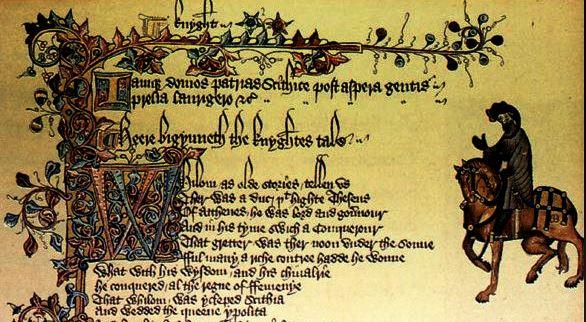 knyght
Iamque domos patrias Scithice post aspera gentis
prelia laurigero &c
Heere bigynneth the knyghtes tale
Whilom as olde stories tellen us
Ther was a duc þt highte Theseus
Of atthenes he was lord and gouernour
And in his tyme swich a Conquerour
That gretter was ther noon under the sonne
fful many a riche contree hadde he wonne
What with his wysdom and his chiualrie
he conquered al the regne of ffemenye
That whilom was ycleped Scithia
And wedded the queene ypolita